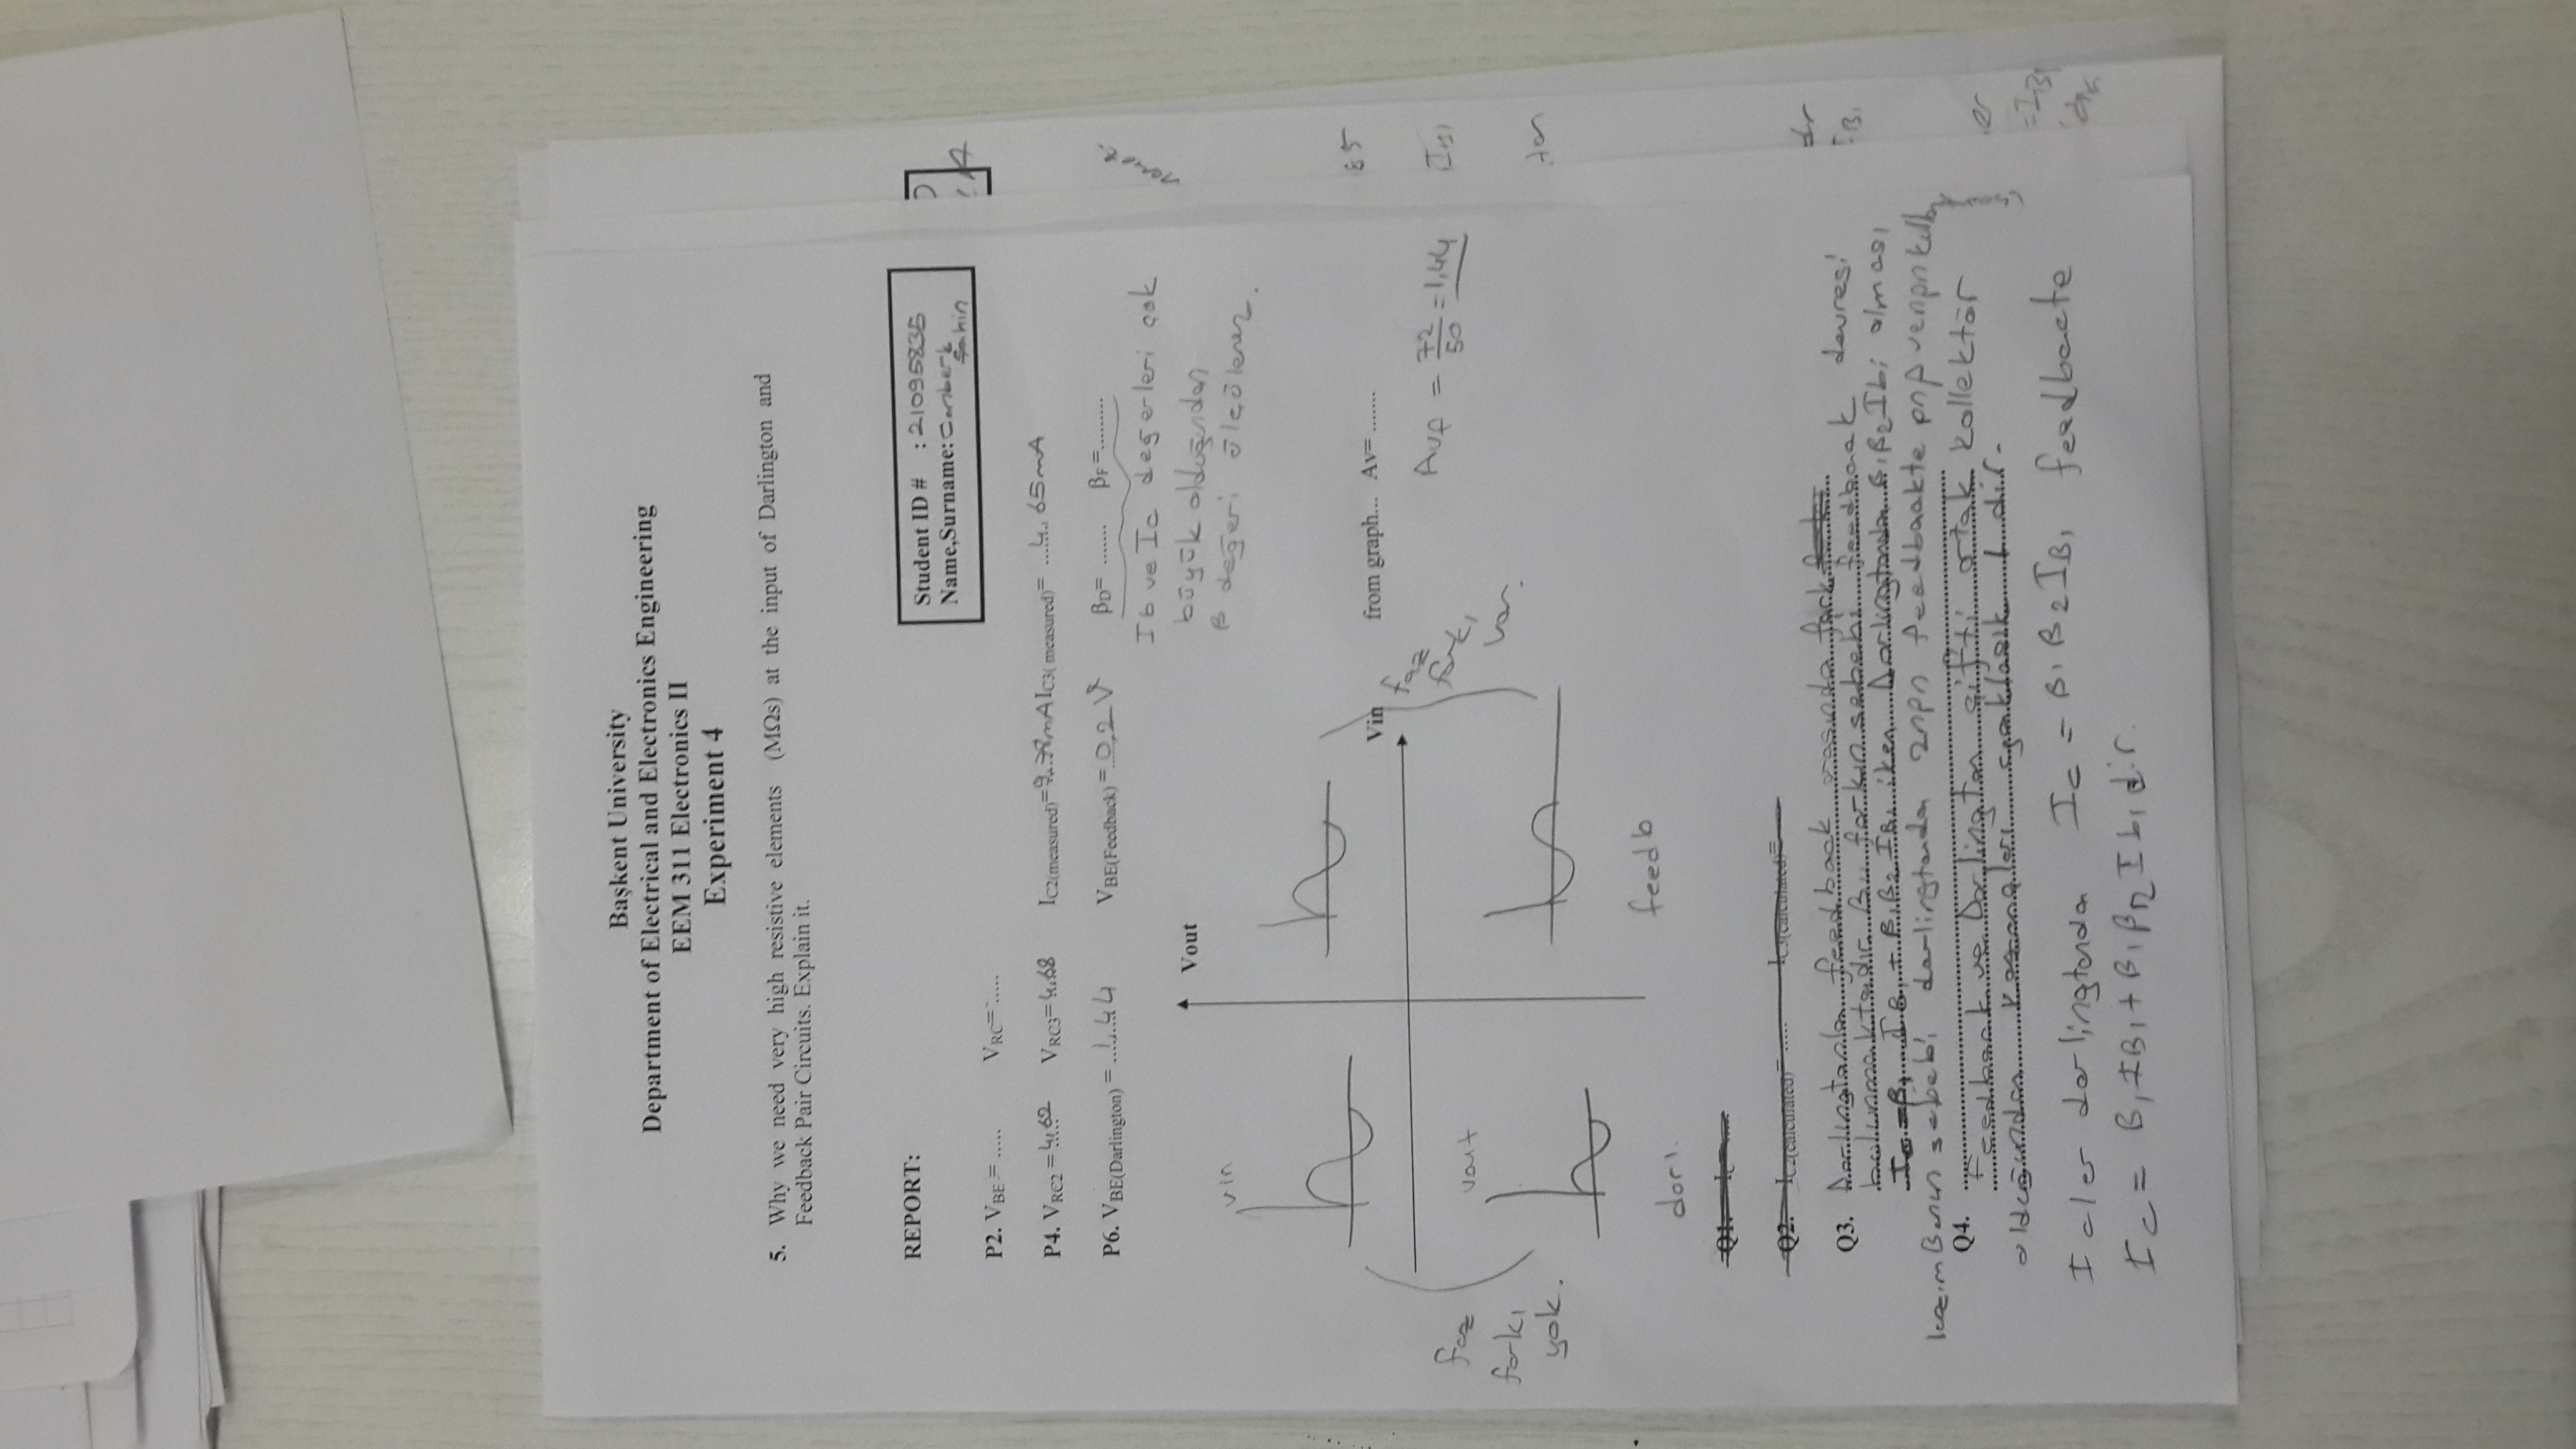 Başkent University
Department of Electrical and Electronics Engineering
EEM 311 Electronics II
Experiment 4
5. Why we need very high resistive elements (MΩs) at the input of Darlington and
Feedback Pair Circuits. Explain it.
REPORT:
Student ID # : 21095835
Name,Surname: Canberk
Şahin
P2. VBE = ..... VRC= .....
P4. VRC2 = 4,62 VRC3= 4,68 IC2(measured)= mA IC3( measured)= ...4,65mA
P6. VBE(Darlington) = 1,44 VBE(Feedback) = 0,2 V βD= ....... βF=.........
Ib ve Ic değerleri çok
büyük olduğundan
β değeri ölçülemez.
Vout
vin
Vin
from graph... Av= .......
Avf = 72/50 = 1,44
faz
farkı
yok.
faz
farkı
var.
vout
darl.
feedb
Q1. IC= .....
Q2. IC2(calculated)= ..... IC3(calculated)=
Q3. Darlingtonla feedback arasında fark
bulunmaktadır. Bu farkın sebebi feedback devresi
Ic = β1 IB1 + β1β2 IB1 iken Darlingtonda β1β2Ib1 olması
Bunun sebebi darlingtonda 2npn feedbackte pnp ve npn
Q4.
Feedback ve Darlington çifti ortak kollektör
olduğundan kazançları yaklaşık 1 dir.
Icler darlingtonda Ic = β1 β2 IB1 feedbacte
Ic = β1 IB1 + β1 β2 Ib1 dir.
85